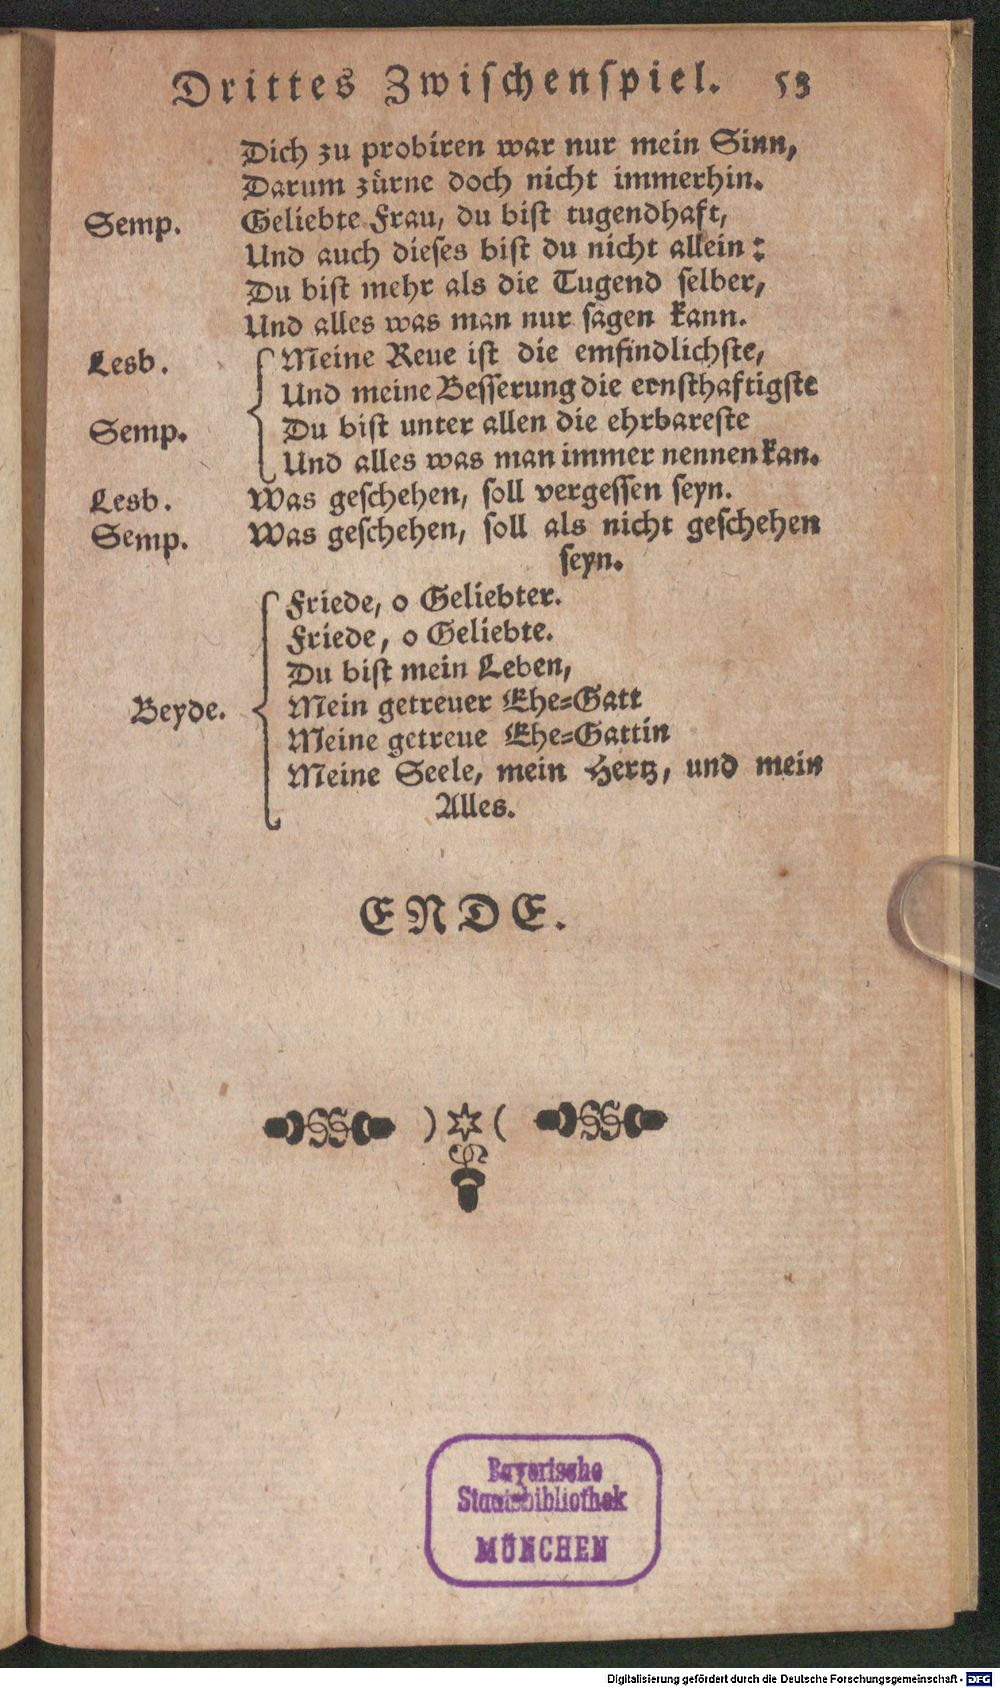 Drittes Zwischenspiel. 53
Dich zu probiren war nur mein Sinn,
Darum zürne doch nicht immerhin.
Semp. Geliebte Frau, du bist tugendhaft,
Und auch dieses bist du nicht allein:
Du bist mehr als die Tugend selber,
Und alles was man nur sagen kann.
Lesb. Meine Reue ist die emfindlichste,
Und meine Besserung die ernsthaftigste
Semp. Du bist unter allen die ehrbareste
Und alles was man immer nennen kan.
Lesb. Was geschehen, soll vergessen seyn.
Semp. Was geschehen, soll als nicht geschehen
seyn.
Friede, o Geliebter.
Friede, o Geliebte.
Du bist mein Leben,
Beyde. Mein getreuer Ehe=Gatt
Meine getreue Ehe=Gattin
Meine Seele, mein Hertz, und mein
Alles.
ENDE.
Bayerische
Staatsbibliothek
MÜNCHEN
Digitalisierung gefördert durch die Deutsche Forschungsgemeinschaft - DFG